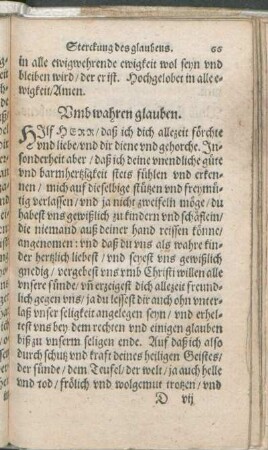 Sterckung des glaubens. 66
in alle ewigwehrende ewigkeit wol seyn vnd
bleiben wird / der er ist. Hochgelobet in alle e-
wigkeit / Amen.
Vmb wahren glauben.
HIlf HERR / daß ich dich allezeit förchte
vnd liebe / vnd dir diene vnd gehorche. In-
sonderheit aber / daß ich deine vnendliche güte
vnd barmhertzigkeit stets fühlen vnd erken-
nen / mich auf dieselbige stützen vnd freymü-
tig verlassen / vnd ja nicht zweifeln möge / du
habest vns gewißlich zu kindern vnd schäflein /
die niemand auß deiner hand reissen könne /
angenomen: vnd daß du vns als wahre kin-
der hertzlich liebest / vnd seyest vns gewißlich
gnedig / vergebest vns vmb Christi willen alle
vnsere sünde / vn̄ erzeigest dich allezeit freund-
lich gegen vns / ja du lessest dir auch ohn vnter-
laß vnser seligkeit angelegen seyn / vnd erhel-
test vns bey dem rechten vnd einigen glauben
biß zu vnserm seligen ende. Auf daß ich also
durch schutz vnd kraft deines heiligen Geistes /
der sünde / dem Teufel / der welt / ja auch helle
vnd tod / frölich vnd wolgemut trotzen / vnd
D vij